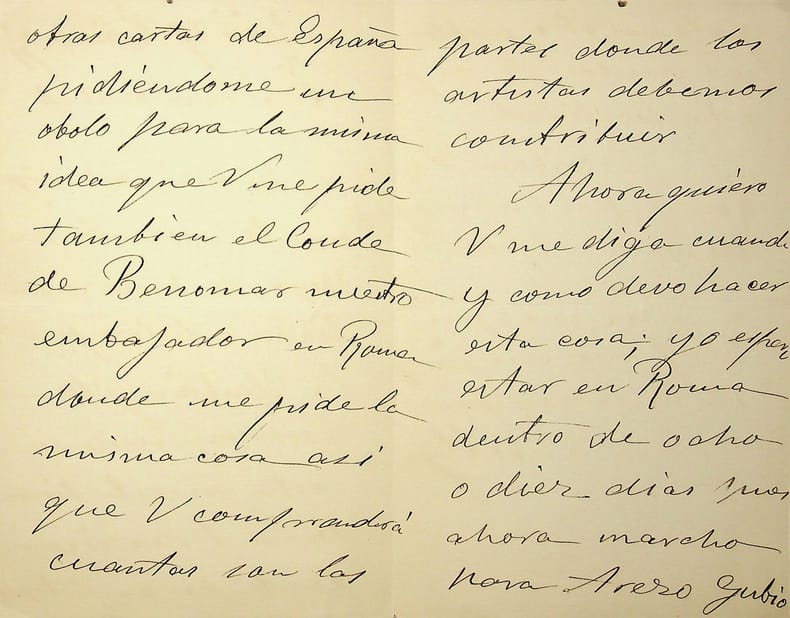 otras cartas de España
pidiéndome un
obolo para la misma
idea que V me pide
tambien el Conde
de Benomar nuestro
embajador en Roma
donde me pide la
misma cosa asi
que V comprenderá
cuantas son las
partes donde los
artistas debemos
contribuir
Ahora quiero
V me diga cuando
y como devo hacer
esta cosa; yo espero
estar en Roma
dentro de ocho
o diez dias pues
ahora marcho
para Arezo Gubio